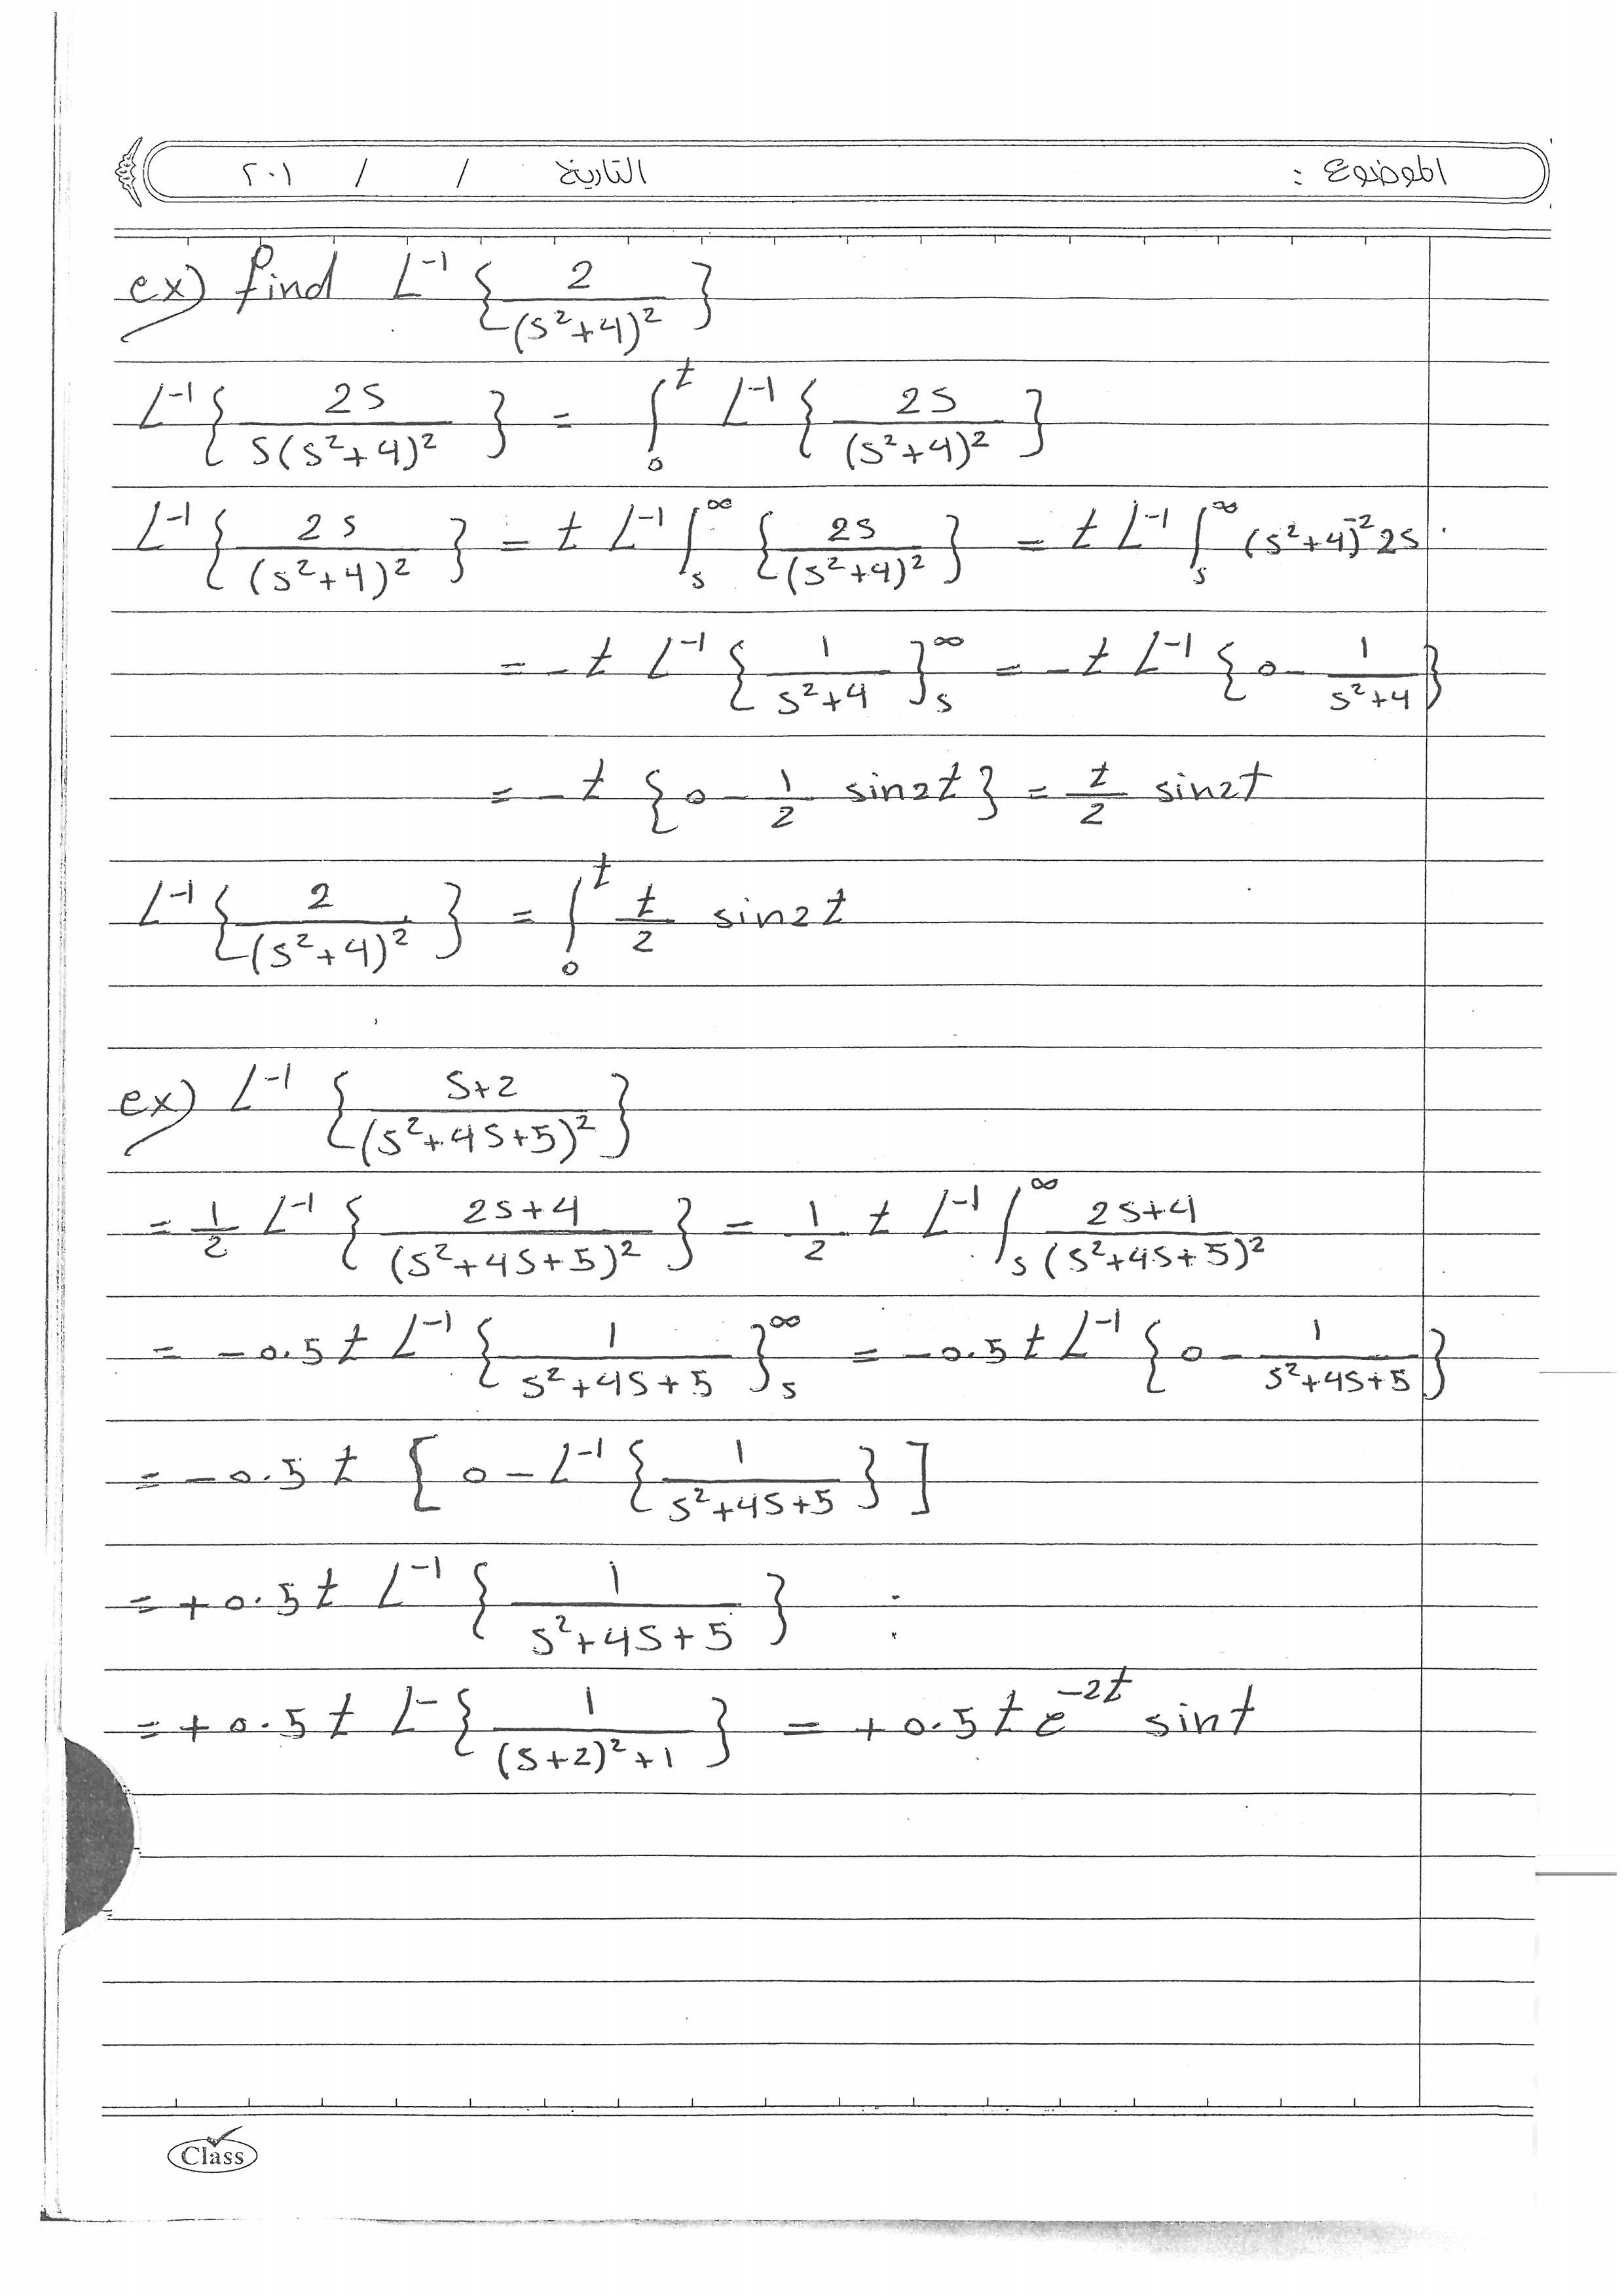 الموضوع : التاريخ / / ٢٠١
ex) find L⁻¹ { 2 / (s²+4)² }
L⁻¹ { 2s / s(s²+4)² } = ∫₀ᵗ L⁻¹ { 2s / (s²+4)² }
L⁻¹ { 2s / (s²+4)² } = t L⁻¹ ∫ₛ^∞ { 2s / (s²+4)² } = t L⁻¹ ∫ₛ^∞ (s²+4)⁻² 2s
= - t L⁻¹ { 1 / s²+4 }ₛ^∞ = - t L⁻¹ { 0 - 1 / s²+4 }
= - t { 0 - 1/2 sin2t } = t/2 sin2t
L⁻¹ { 2 / (s²+4)² } = ∫₀ᵗ t/2 sin2t
ex) L⁻¹ { s+2 / (s²+4s+5)² }
= 1/2 L⁻¹ { 2s+4 / (s²+4s+5)² } = 1/2 t L⁻¹ ∫ₛ^∞ 2s+4 / (s²+4s+5)²
= - 0.5 t L⁻¹ { 1 / s²+4s+5 }ₛ^∞ = - 0.5 t L⁻¹ { 0 - 1 / s²+4s+5 }
= - 0.5 t [ 0 - L⁻¹ { 1 / s²+4s+5 } ]
= + 0.5 t L⁻¹ { 1 / s²+4s+5 } :
= + 0.5 t L⁻ { 1 / (s+2)²+1 } = + 0.5 t e^-2t sint
Class